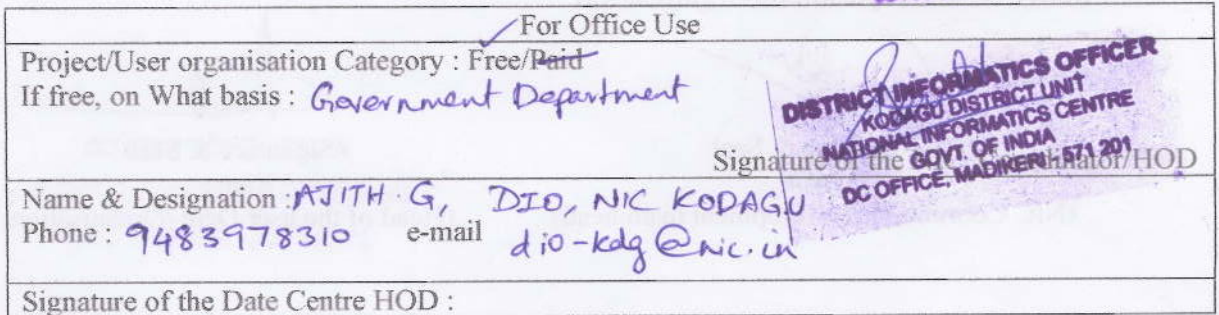 For Office Use
Project/User organisation Category : Free/Paid
If free, on What basis : Government Department
DISTRICT INFORMATICS OFFICER
KODAGU DISTRICT UNIT
NATIONAL INFORMATICS CENTRE
GOVT. OF INDIA
DC OFFICE, MADIKERI - 571 201
Signature of the /HOD
Name & Designation : AJITH G, DIO, NIC KODAGU
Phone : 9483978310 e-mail dio-kdg@nic.in
Signature of the Date Centre HOD :